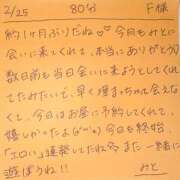 2/25 80分 F様
約1ヶ月ぶりだね♡今日もみとに
会いに来てくれて、本当にありがとう♡
数日前も当日会いに来ようとしてくれ
てたみたいで、早く埋まっちゃって会えなく
て、今日はお昼に予約してくれて、
嬉しかったよ(o^^o)今日も終始、
「エロい」連発してたね また一緒に
遊ぼうり!! みと